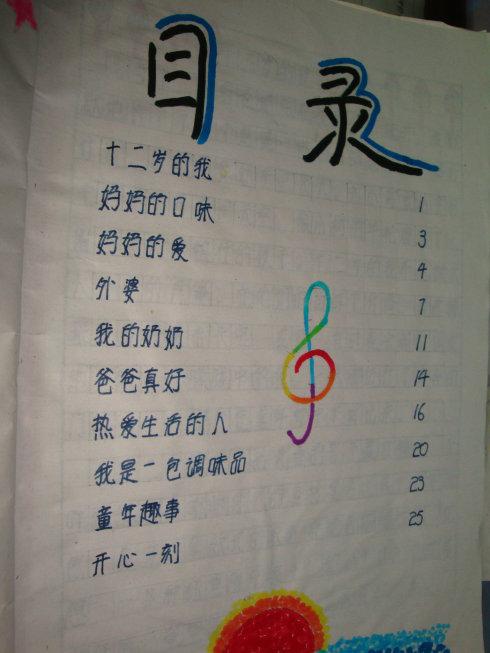 目 录
十二岁的我 1
妈妈的口味 3
妈妈的爱 4
外婆 7
我的奶奶 11
爸爸真好 14
热爱生活的人 16
我是一包调味品 20
童年趣事 23
开心一刻 25